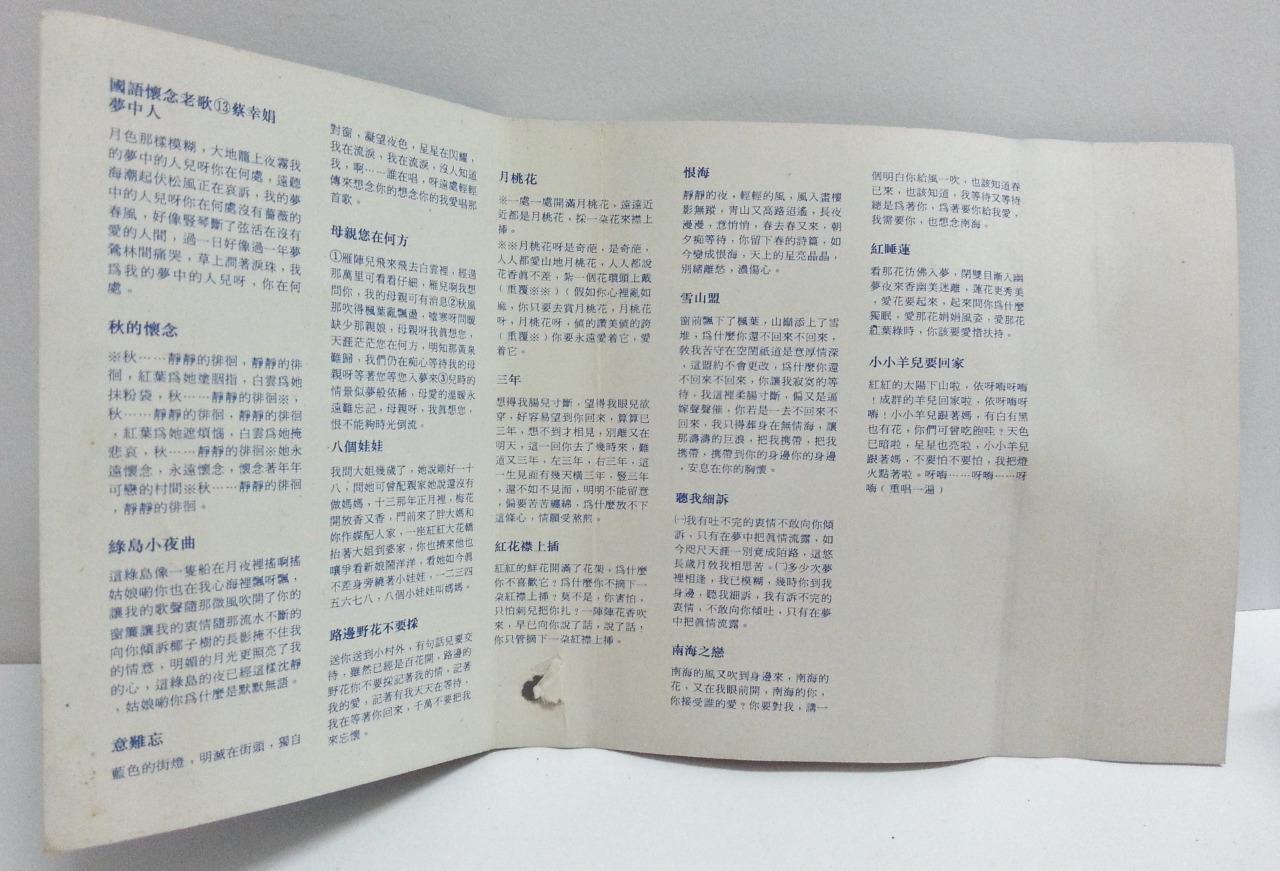 國語懷念老歌⑬蔡幸娟
夢中人
月色那樣模糊，大地籠上夜霧我
的夢中的人兒呀你在何處，遠聽
海潮起伏松風正在哀訴，我的夢
中的人兒呀你在何處沒有薔薇的
春風，好像豎琴斷了弦活在沒有
愛的人間，過一日好像過一年夢
鶯林間痛哭，草上潤著淚珠，我
爲我的夢中的人兒呀，你在何
處。
秋的懷念
※秋……靜靜的徘徊，靜靜的徘
徊，紅葉爲她塗胭指，白雲爲她
抹粉袋，秋……靜靜的徘徊※，
秋……靜靜的徘徊，靜靜的徘徊
，紅葉爲她遮煩惱，白雲爲她掩
悲哀，秋……靜靜的徘徊※她永
遠懷念，永遠懷念，懷念著年年
可戀的村間※秋……靜靜的徘徊
，靜靜的徘徊。
綠島小夜曲
這綠島像一隻船在月夜裡搖啊搖
姑娘喲你也在我心海裡飄呀飄，
讓我的歌聲隨那微風吹開了你的
窗簾讓我的衷情隨那流水不斷的
向你傾訴椰子樹的長影掩不住我
的情意，明媚的月光更照亮了我
的心，這綠島的夜已經這樣沈靜
，姑娘喲你爲什麼是默默無語。
意難忘
藍色的街燈，明滅在街頭，獨自
對窗，凝望夜色，星星在閃耀，
我在流淚，我在流淚，沒人知道
我，啊……誰在唱，呀遠處輕輕
傳來想念你的想念你的我愛唱那
首歌。
母親您在何方
①雁陣兒飛來飛去白雲裡，經過
那萬里可看看仔細，雁兒啊我想
問你，我的母親可有消息②秋風
那吹得楓葉亂飄盪，噓寒呀問暖
缺少那親娘，母親呀我眞想您，
天涯茫茫您在何方，明知那黃泉
難歸，我們仍在痴心等待我的母
親呀等著您等您入夢來③兒時的
情景似夢般依稀，母愛的溫暖永
遠難忘記，母親呀，我眞想您，
恨不能夠時光倒流。
八個娃娃
我問大姐幾歲了，她說剛好一十
八，問她可曾配親家她說還沒有
做媽媽，十三那年正月裡，梅花
開放香又香，門前來了胖大媽和
妳作媒配人家，一座紅紅大花轎
抬著大姐到婆家，你也擠來他也
嚷爭看新娘鬧洋洋，看她如今眞
不差身旁繞著小娃娃，一二三四
五六七八，八個小娃娃叫媽媽。
路邊野花不要採
送你送到小村外，有句話兒要交
待，雖然已經是百花開，路邊的
野花你不要採記著我的情，記著
我的愛，記著有我天天在等待，
我在等著你回來，千萬不要把我
來忘懷。
月桃花
※一處一處開滿月桃花，遠遠近
近都是月桃花，採一朵花來襟上
捶。
※※月桃花呀是奇葩，是奇葩，
人人都愛山地月桃花，人人都說
花香眞不差，紮一個花環頭上戴
（重覆※※）（假如你心裡亂如
麻，你只要去賞月桃花，月桃花
呀，月桃花呀，値的讚美値的誇
（重覆※）你要永遠愛着它，愛
着它。
三年
想得我腸兒寸斷，望得我眼兒欲
穿，好容易望到你回來，算算已
三年，想不到才相見，別離又在
明天，這一回你去了幾時來，難
道又三年，左三年，右三年，這
一生見面有幾天橫三年，豎三年
，還不如不見面，明明不能留意
，偏要苦苦纏綿，爲什麼放不下
這條心，情願受熬煎。
紅花襟上插
紅紅的鮮花開滿了花架，爲什麼
你不喜歡它？爲什麼你不摘下一
朵紅襟上捶？莫不是，你害怕，
只怕刺兒把你扎？一陣陣花香吹
來，早已向你說了話，說了話！
你只管摘下一朵紅襟上捶。
恨海
靜靜的夜，輕輕的風，風入畫樓
影無蹤，靑山又高路迢遙，長夜
漫漫，意悄悄，春去春又來，朝
夕痴等待，你留下春的詩篇，如
今變成恨海，天上的星亮晶晶，
別緒離愁，濃傷心。
雪山盟
窗前飄下了楓葉，山巔添上了雪
堆，爲什麼你還不回來不回來，
敎我苦守在空閨紙道是意厚情深
，這盟約不會更改，爲什麼你還
不回來不回來，你讓我寂寞的等
待，我這裡柔腸寸斷，偏又是逼
嫁聲聲催，你若是一去不回來不
回來，我只得葬身在無情海，讓
那濤濤的巨浪，把我携帶，把我
携帶，携帶到你的身邊你的身邊
，安息在你的胸懷。
聽我細訴
㈠我有吐不完的衷情不敢向你傾
訴，只有在夢中把眞情流露，如
今咫尺天涯一別竟成陌路，這悠
長歲月敎我相思苦。㈡多少次夢
裡相逢，我已模糊，幾時你到我
身邊，聽我細訴，我有訴不完的
衷情，不敢向你傾吐，只有在夢
中把眞情流露。
南海之戀
南海的風又吹到身邊來，南海的
花，又在我眼前開，南海的你，
你接受誰的愛？你要對我，講一
個明白你給風一吹，也該知道春
已來，也該知道，我等待又等待
總是爲著你，爲著要你給我愛，
我需要你，也想念南海。
紅睡蓮
看那花彷佛入夢，閉雙目漸入幽
夢夜來香幽美迷離，蓮花更秀美
，愛花要起來，起來問你爲什麼
獨眠，愛那花娟娟風姿，愛那花
紅葉綠時，你該要愛惜扶持。
小小羊兒要回家
紅紅的太陽下山啦，依呀嗨呀嗨
！成群的羊兒回家啦，依呀嗨呀
嗨！小小羊兒跟著媽，有白有黑
也有花，你們可曾吃飽哇？天色
已暗啦，星星也亮啦，小小羊兒
跟著媽，不要怕不要怕，我把燈
火點著啦。呀嗨……呀嗨……呀
嗨（重唱一遍）